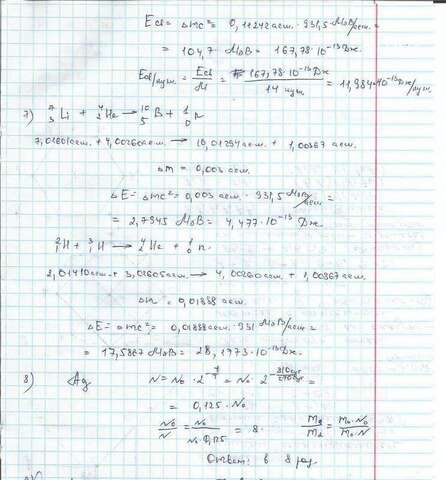 Eсв = Δmc² = 0,11242 а.е.м. · 931,5 МэВ/а.е.м. =
= 104,7 МэВ = 167,78·10⁻¹³ Дж.
Eсв/нук. = Eсв/M = 167,78·10⁻¹³ Дж / 14 нук. = 11,984·10⁻¹³ Дж/нук.
7) ⁷₃Li + ⁴₂He → ¹⁰₅B + ¹₀n
7,01601 а.е.м. + 4,00260 а.е.м. → 10,01294 а.е.м. + 1,00867 а.е.м.
Δm = 0,003 а.е.м.
ΔE = Δmc² = 0,003 а.е.м. · 931,5 МэВ/а.е.м. =
= 2,7945 МэВ = 4,477·10⁻¹³ Дж.
²₁H + ³₁H → ⁴₂He + ¹₀n.
2,01410 а.е.м. + 3,01605 а.е.м. → 4,00260 а.е.м. + 1,00867 а.е.м.
Δm = 0,01888 а.е.м.
ΔE = Δmc² = 0,01888 а.е.м. · 931 МэВ/а.е.м. =
= 17,5867 МэВ = 28,1773·10⁻¹³ Дж.
8) N = N₀ · 2 = N₀ · 2 =
= 0,125 · N₀
N₀/N = N₀/N₀·0,125 = 8. = m₀·N₀/m₀·N
Ответ: в 8 раз.